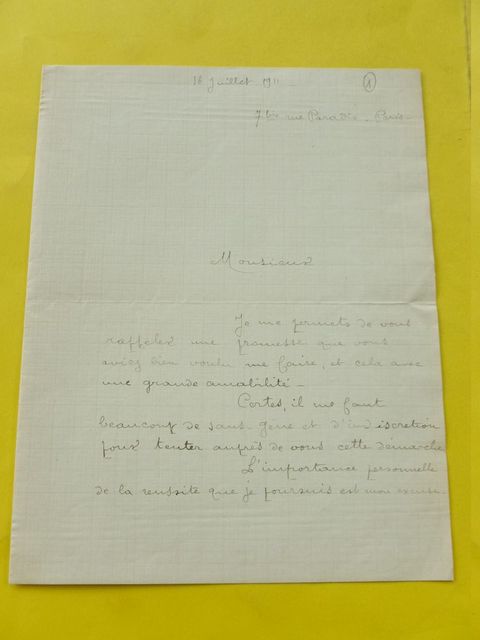 16 Juillet 1911
1
7 bis rue Paradis - Paris -
Monsieur
Je me permets de vous
rappeler une promesse que vous
aviez bien voulu me faire, et cela avec
une grande amabilité -
Certes, il me faut
beaucoup de sans gêne et d'indiscretion
pour tenter auprès de vous cette démarche
L'importance personnelle
de la reussite que je poursuis est mon excuse.